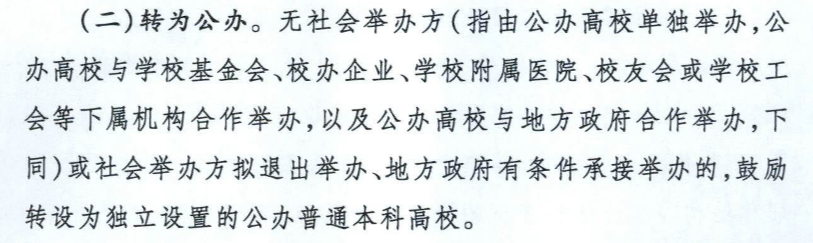 (二)转为公办。无社会举办方(指由公办高校单独举办,公
办高校与学校基金会、校办企业、学校附属医院、校友会或学校工
会等下属机构合作举办,以及公办高校与地方政府合作举办,下
同)或社会举办方拟退出举办、地方政府有条件承接举办的,鼓励
转设为独立设置的公办普通本科高校。